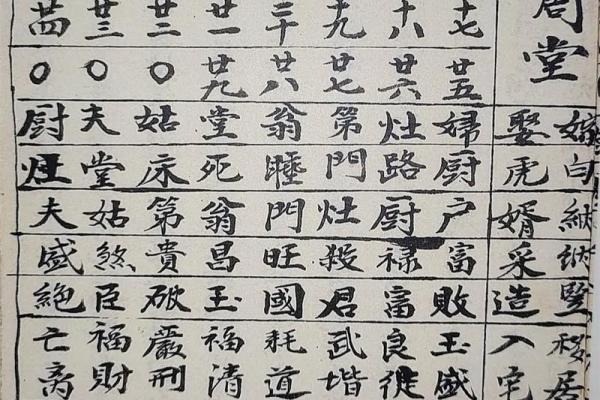 周堂
嫁白納納竪移居
娶虎婿采造入宅
十七廿五婦厨户富敗玉盛
十八廿六灶路厨禄富良徙
十九廿七第門灶殺君武堦
二十廿八翁睡門旺國耗道
廿一廿九堂死翁昌玉福清
廿二〇姑床第貴破嚴刑
廿三〇夫堂姑煞臣福財
廿四〇厨灶夫盛絶亡离